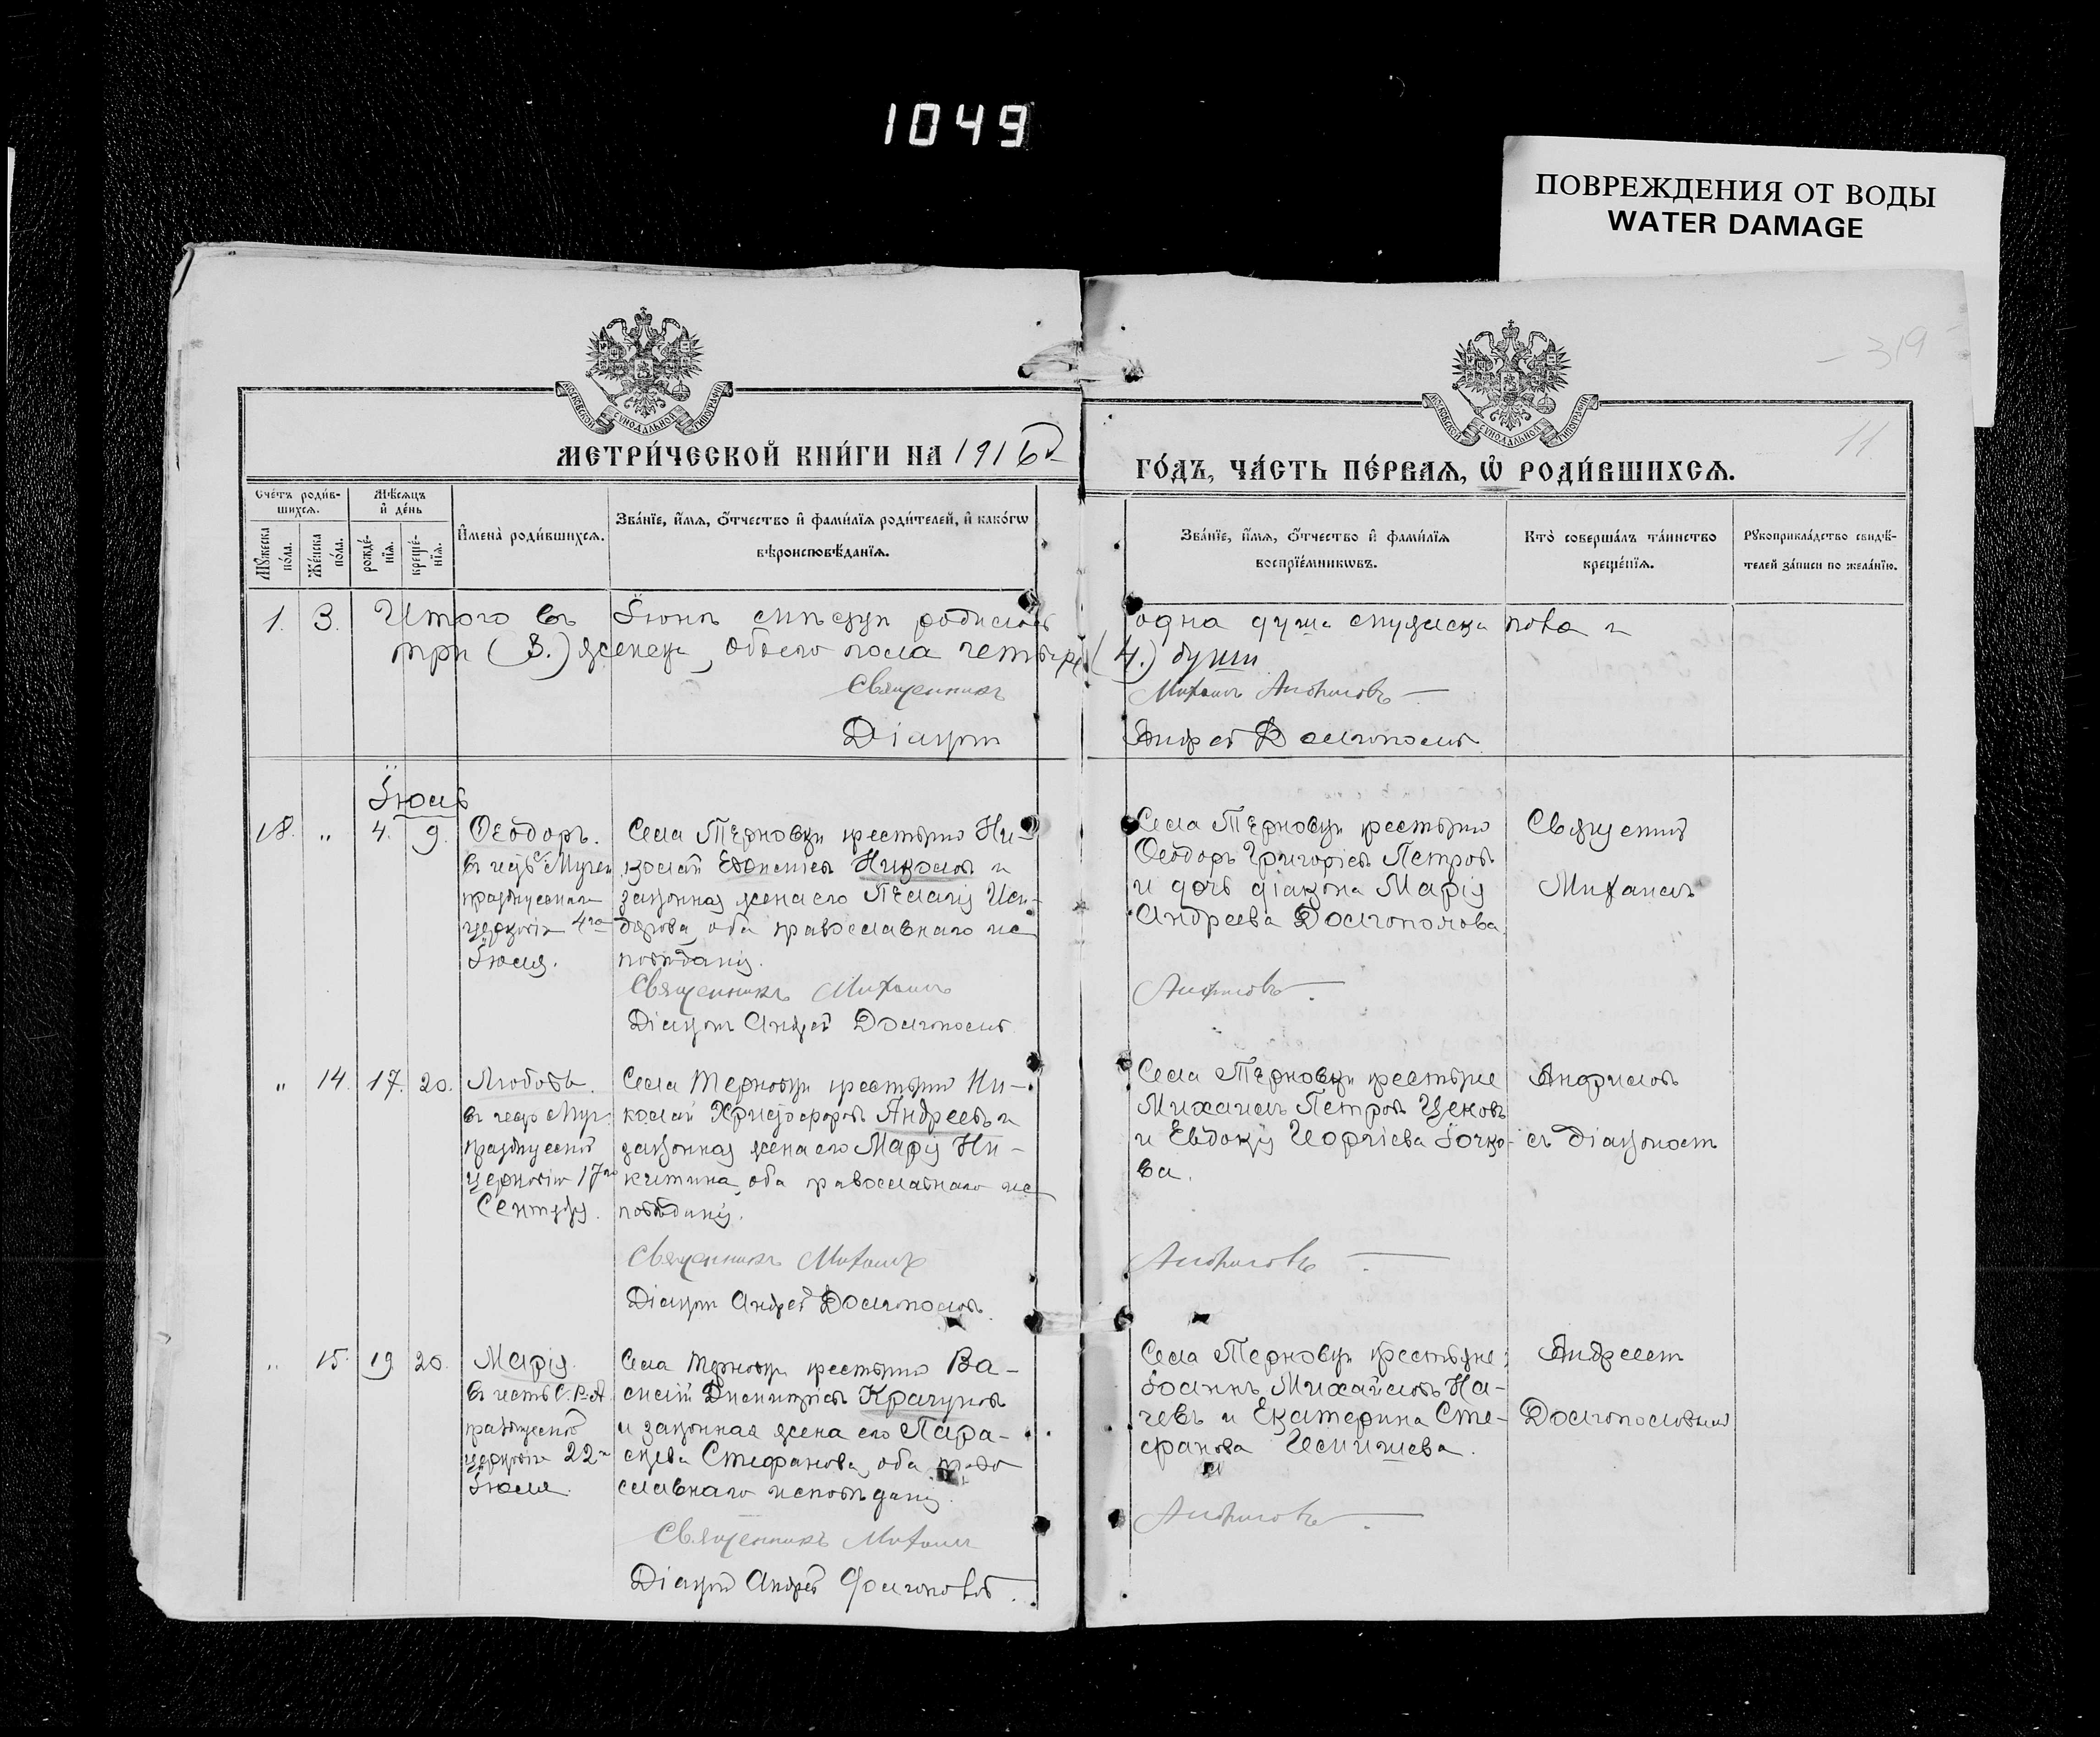 1049
ПОВРЕЖДЕНИЯ ОТ ВОДЫ
WATER DAMAGE
319
11
МОСКОВСКОЙ СѴНОДАЛЬНОЙ ТИПОГРАФІИ
МОСКОВСКОЙ СѴНОДАЛЬНОЙ ТИПОГРАФІИ
МЕТРИ́ЧЕСКОЙ КНИ́ГИ НА 1916 й ГО́ДЪ, ЧА́СТЬ ПЕ́РВАЯ, Ѡ҆ РОДИ́ВШИХСЯ.
Сче́тъ роди́в-
шихся.
Мѣ́сяцъ
и҆ де́нь
Мꙋ́жеска по́ла.
Же́нска по́ла.
рожде́-
нїя.
креще́-
нїя.
И҆мена̀ роди́вшихся.
Зва́нїе, и҆́мя, ѻ҆́тчество и҆ фами́лїя роди́телей, и҆ како́гѡ
вѣроисповѣ́данїя.
Зва́нїе, и҆́мя, ѻ҆́тчество и҆ фами́лїя
воспрїе́мникѡвъ.
Кто̀ соверша́лъ та́инство
креще́нїя.
Рꙋкоприкла́дство свидѣ́-
телей за́писи по жела́нїю.
1. 3. Итого въ Іюнѣ мѣсяцѣ родилось одна душа мужеска пола и
три (3.) женска, обоего пола четыре (4.) души
Священникъ Михаилъ Андриловъ
Діаконъ Андрей Долгополовъ
Іюль
18. " 4. 9. Ѳеодоръ.
въ честь Мучен
празднуемаго
церковію 4го
Іюля.
Села Терновки крестьянинъ Ни-
колай Николовъ и
законная жена его Пелагія Иси-
дорова, оба православнаго ис
повѣданія.
Священникъ Михаилъ Андриловъ.
Діаконъ Андрей Долгополовъ
Села Терновки крестьянинъ
Ѳеодоръ Григоріевъ Петровъ
и дочь діакона Марія
Андреева Долгополова.
Священникъ
Михаилъ
" 14. 17. 20. Любовь.
въ честь Муч.
празднуемой
церковію 17го
Сентября.
Села Терновки крестьянинъ Ни-
колай Христофоровъ Андреевъ и
законная жена его Марія Ни-
китина, оба православнаго ис
повѣданія.
Священникъ Михаилъ Андриловъ.
Діаконъ Андрей Долгополовъ.
Села Терновки крестьяне
Михаилъ Петровъ Ценовъ
и Евдокія Георгіева Бочко-
ва.
Андриловъ
съ діакономъ
" 15. 19 20. Марія.
въ честь С. Р-А
празднуемой
церковію 22го
Іюля.
Села Терновки крестьянинъ Ва-
силій Димитріевъ Крачуновъ
и законная жена его Пара-
скева Стефанова, оба право
славнаго исповѣданія.
Священникъ Михаилъ Андриловъ.
Діаконъ Андрей Долгополовъ.
Села Терновки крестьяне:
Іоаннъ Михайловъ На-
чевъ и Екатерина Сте-
фанова
Андреемъ
Долгополовымъ